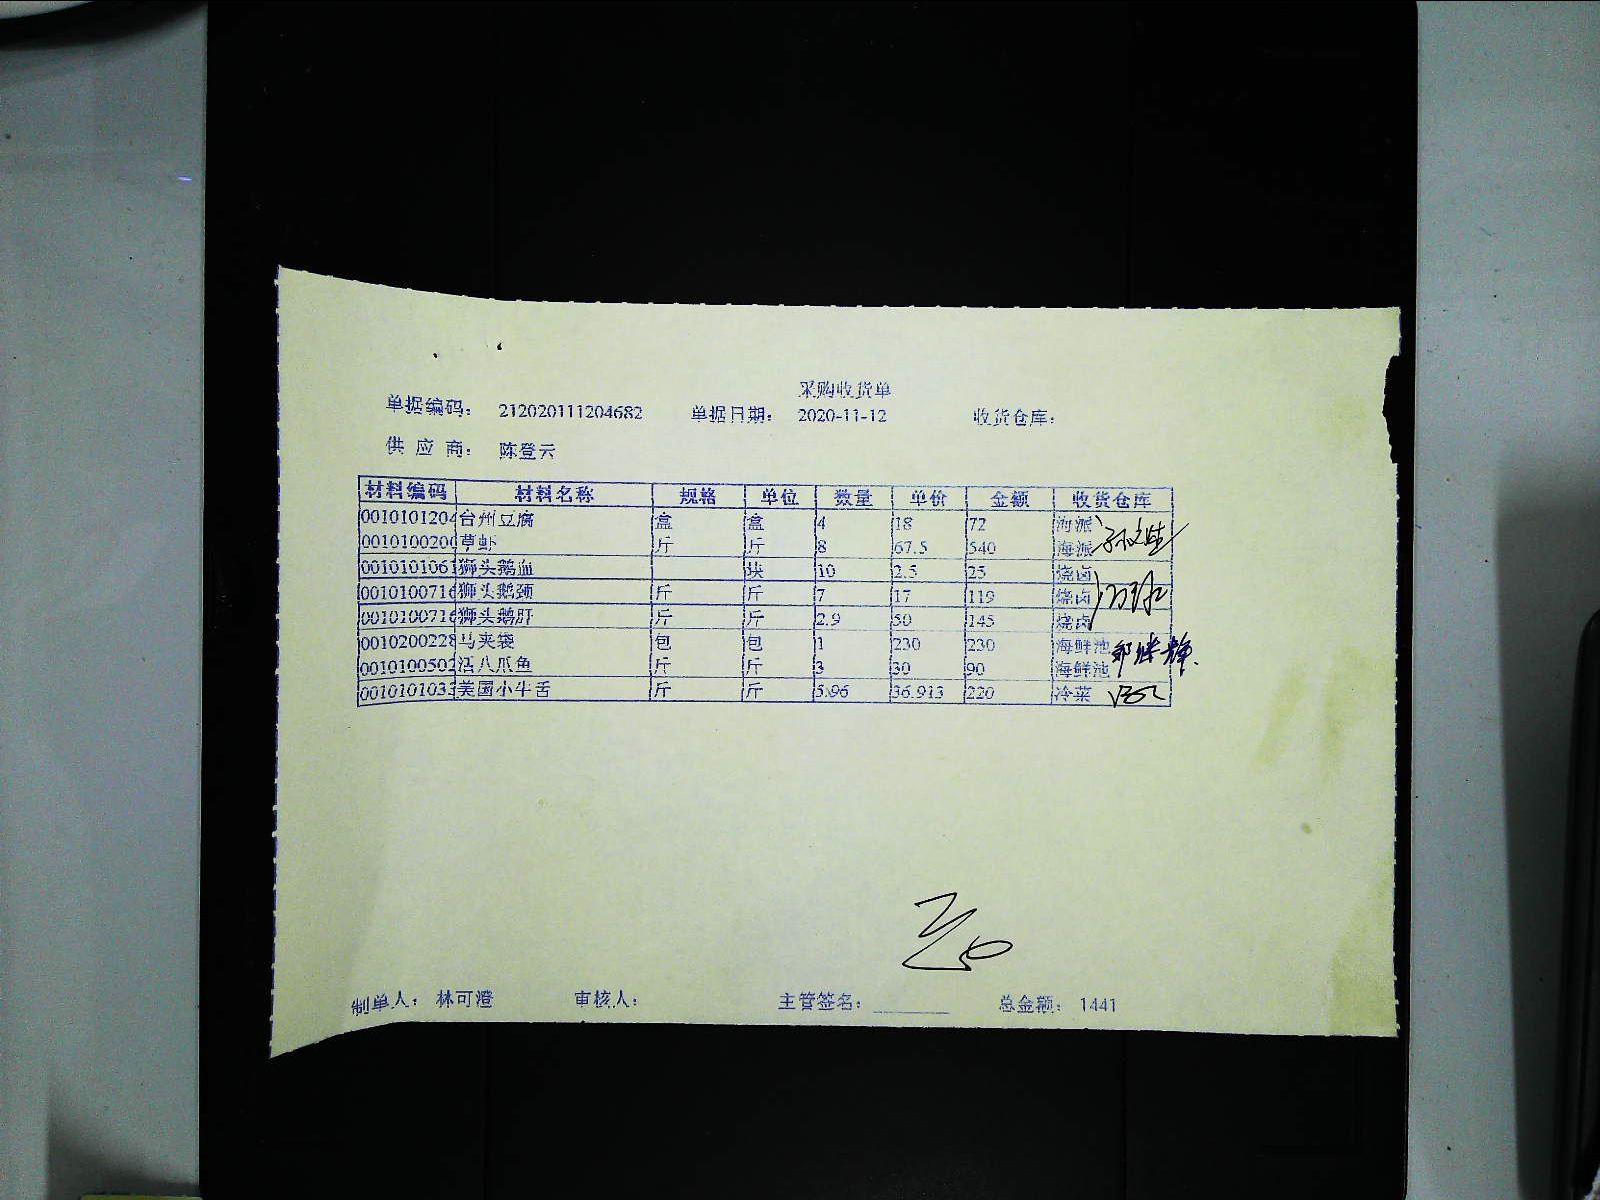 采购收货单
单据编码： 212020111204682 单据日期： 2020-11-12 收货仓库：
供 应 商： 陈登云
材料编码 材料名称 规格 单位 数量 单价 金额 收货仓库
0010101204 台州豆腐 盒 盒 4 18 72 海派
0010100200 草虾 斤 斤 8 67.5 540 海派
0010101061 狮头鹅血 块 10 2.5 25 烧卤
0010100716 狮头鹅颈 斤 斤 7 17 119 烧卤
0010100716 狮头鹅肝 斤 斤 2.9 50 145 烧卤
0010200228 马夹袋 包 包 1 230 230 海鲜池
0010100502 活八爪鱼 斤 斤 3 30 90 海鲜池
0010101033 美国小牛舌 斤 斤 5.96 36.913 220 冷菜
制单人： 林可澄 审核人： 主管签名： 总金额： 1441